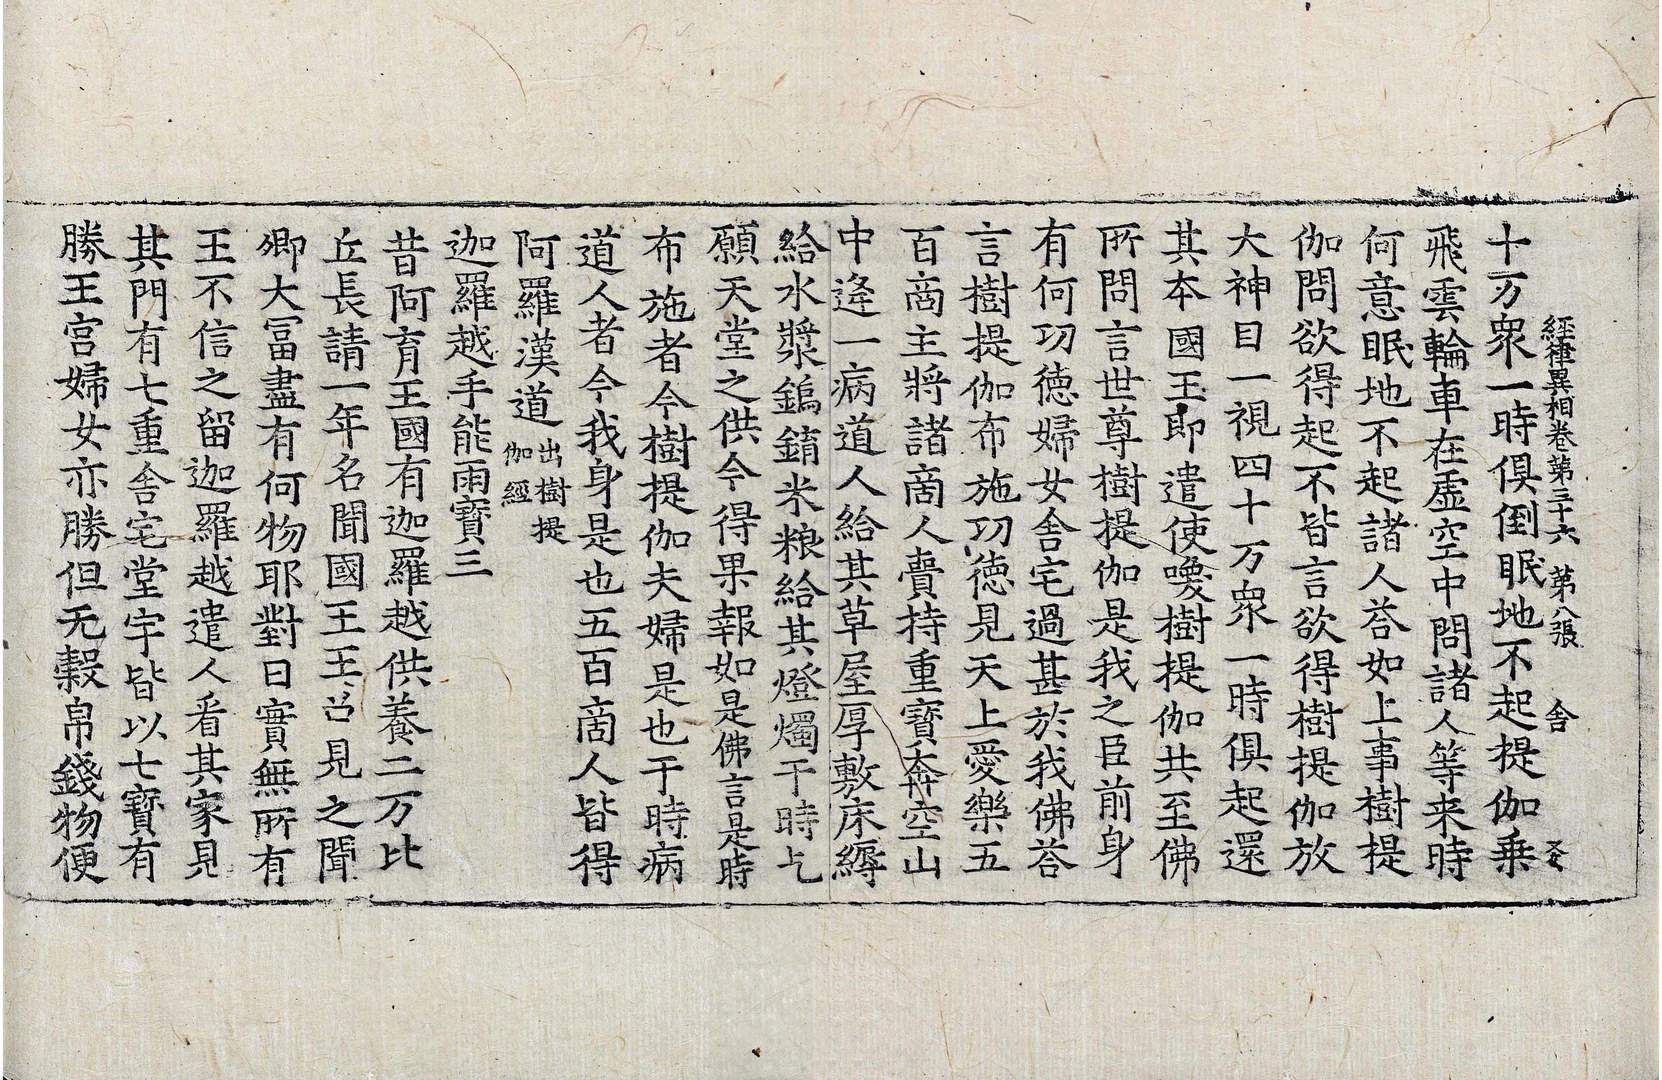 經律異相卷第三十六 第八張 舍
十万衆一時俱倒眠地不起提伽乗
飛雲輪車在虛空中問諸人等来時
何意眠地不起諸人荅如上事樹提
伽問欲得起不皆言欲得樹提伽放
大神目一視四十万衆一時俱起還
其本國王即遣使喚樹提伽共至佛
所問言世尊樹提伽是我之臣前身
有何㓛德婦女舍宅過甚於我佛荅
言樹提伽布施㓛德見天上愛樂五
百啇主將諸啇人賷持重寶奔空山
中逢一病道人給其草屋厚敷床縟
給水漿鎢錥米粮給其燈燭于時乞
願天堂之供今得果報如是佛言是時
布施者今樹提伽夫婦是也于時病
道人者今我身是也五百啇人皆得
阿羅漢道出樹提
伽經
迦羅越手能雨寶三
昔阿育王國有迦羅越供養二万比
丘長請一年名聞國王王召見之聞
卿大冨盡有何物耶對曰實無所有
王不信之留迦羅越遣人看其家見
其門有七重舍宅堂宇皆以七寶有
勝王宮婦女亦勝但无縠帛錢物便